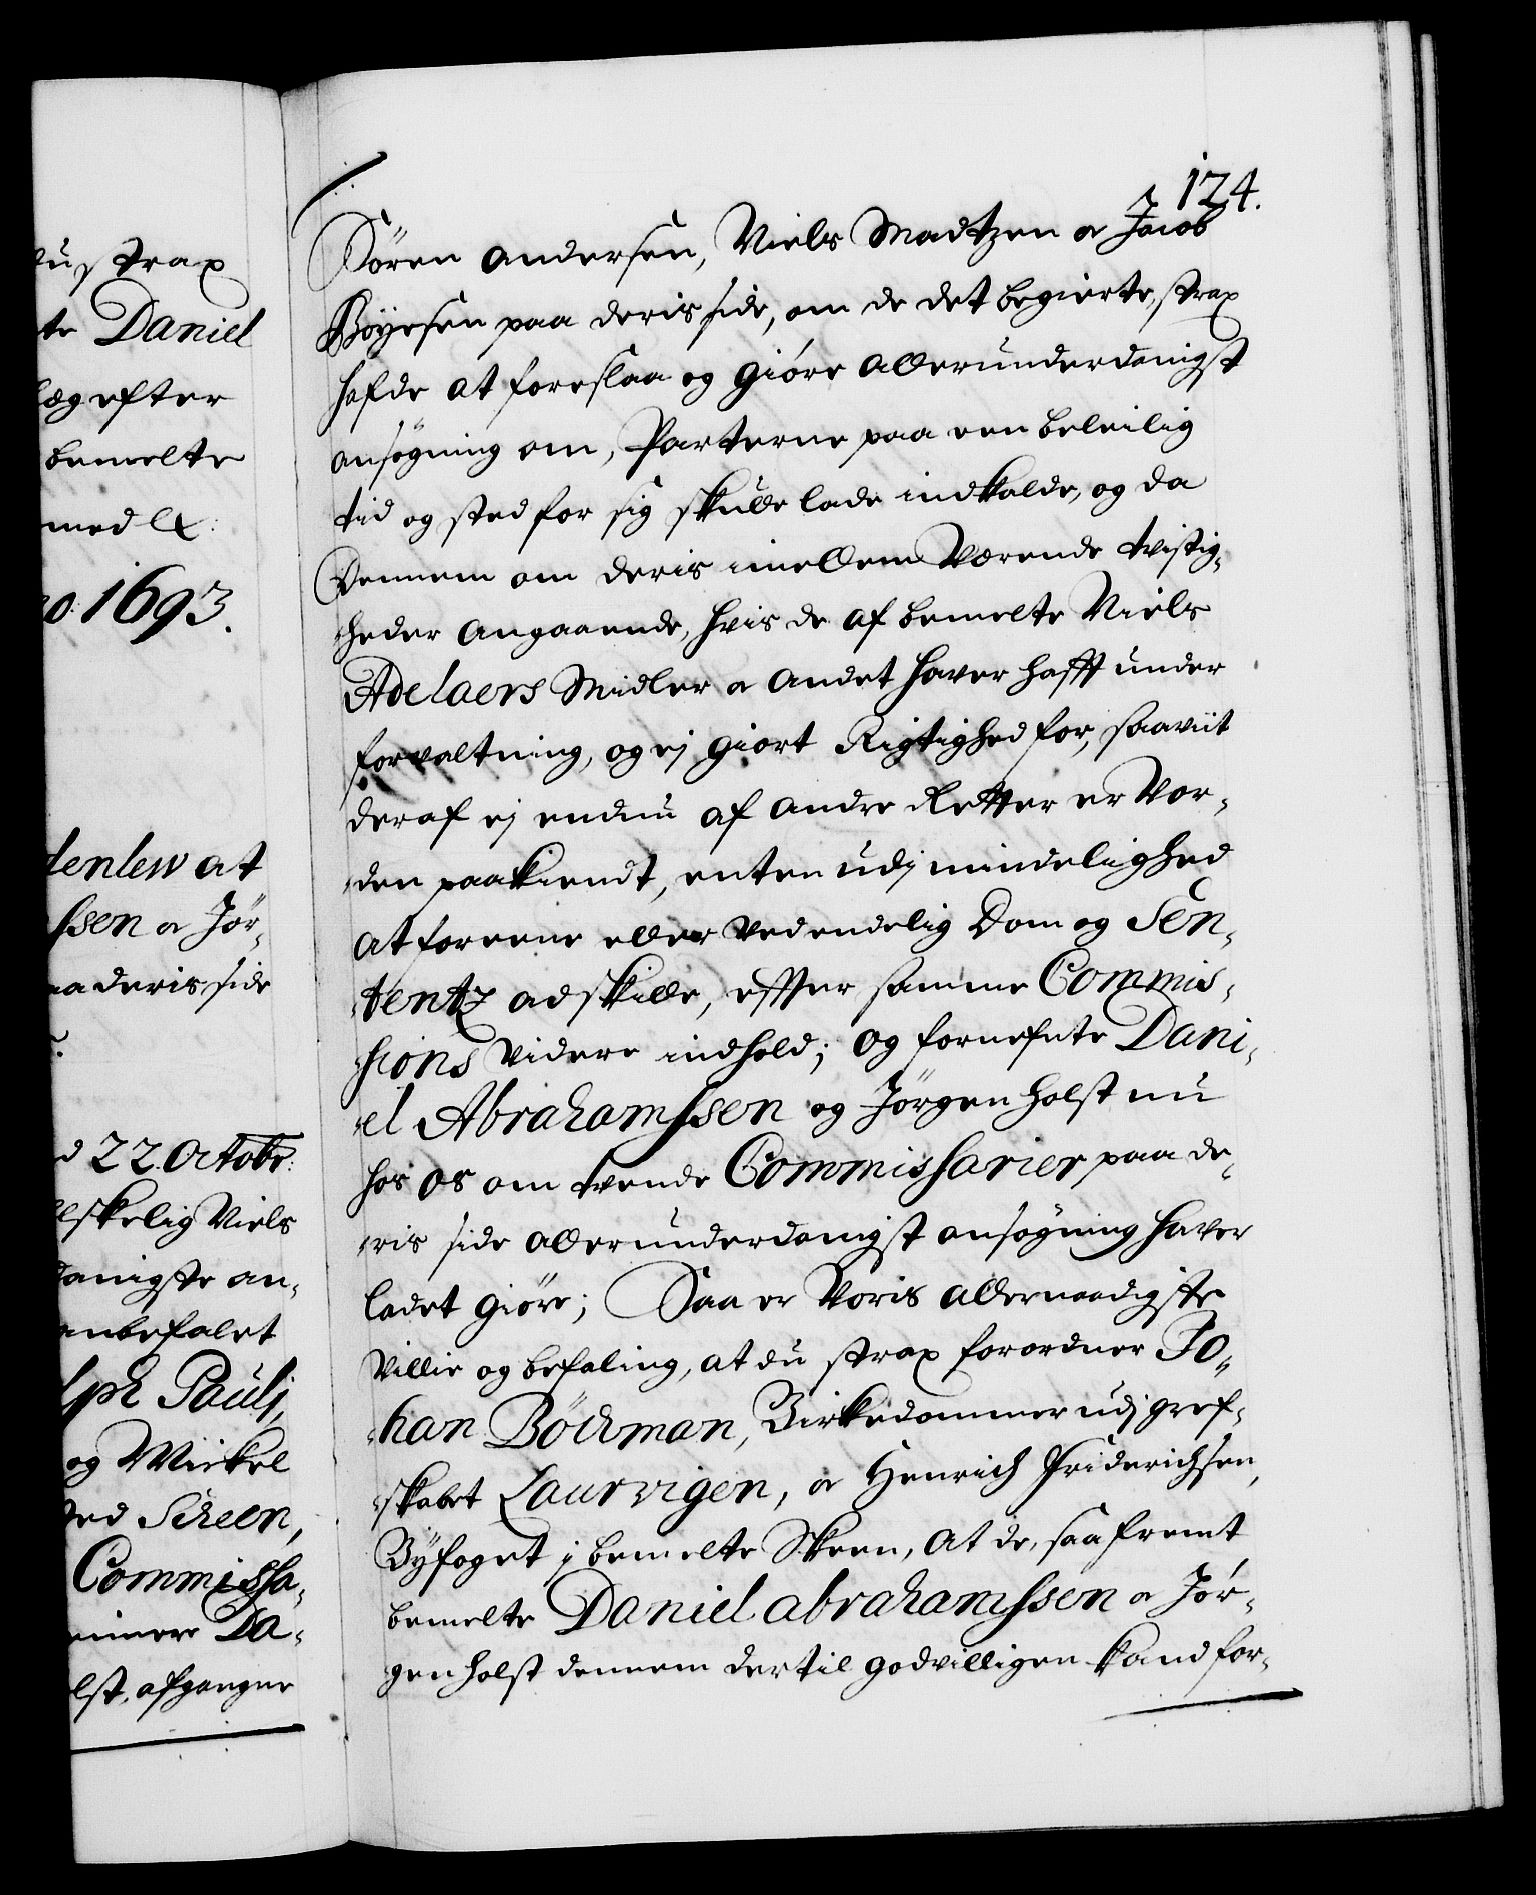 lu strax
te Daniel
læg efter
bemelte
med &:
o: 1693.
denlew at
ssen og Jør-
aa deris side
d 22. Octobr:
lskelig Niels
danigste an-
anbefalet
lph Paulj,
og Mickel
ved Scheen,
Commissa-
Da-
lst, afgangne
124.
Sören Andersen, Niels Madtzen og Jacob
Böyesen paa deris side, om de det begierte, strax
hafde at foreslaa og giöre allerunderdanigst
ansögning om, Parterne paa een beleilig
tid og sted for sig skulle lade indkalde, og da
Dennem om deris imellem Værende tvistig-
heder angaaende, hvis de af bemelte Niels
Adelaers Midler og andet haver hafft under
forvaltning, og ej giort Rigtighed for, saaviit
deraf ej endnu af andre Retter er Vor-
den paakiendt, enten udj mindelighed
at foreene eller ved endelig Dom og Sen-
tentz adskille, effter samme Commis-
sions videre indhold; og fornefnte Dani-
el Abrahamssen og Jörgen Holst nu
hos os om tvende Commissarier paa de-
ris side allerunderdanigst ansögning haver
ladet giöre; Saa er Voris allernaadigste
Villie og befaling, at du strax forordner Jo-
han Böckman, Birkedommer udj gref-
skabet Laurvigen, og Henrich Friderichsen,
Byfoget j bemelte Skeen, at de, saafremt
bemelte Daniel Abrahamssen og Jør-
gen Holst dennem dertil godvilligen kand for-